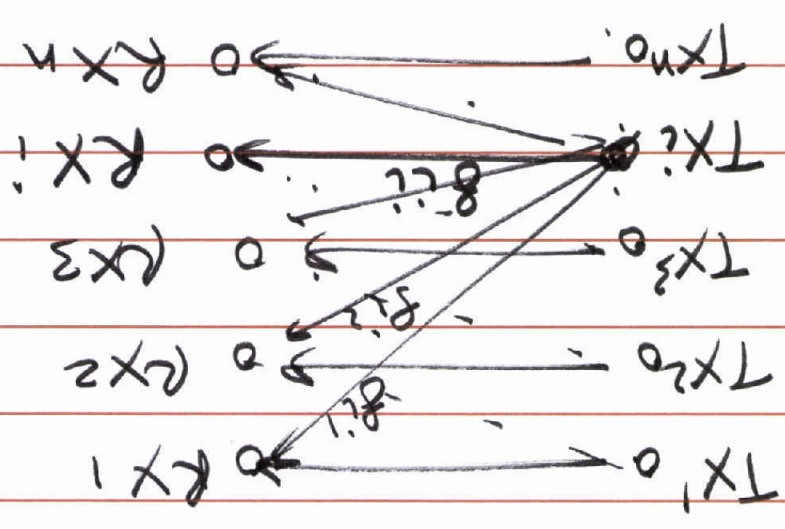 TX1 RX1
gi1
TX2 RX2
gi2
TX3 RX3
gii
TXi RXi
TXn RXn